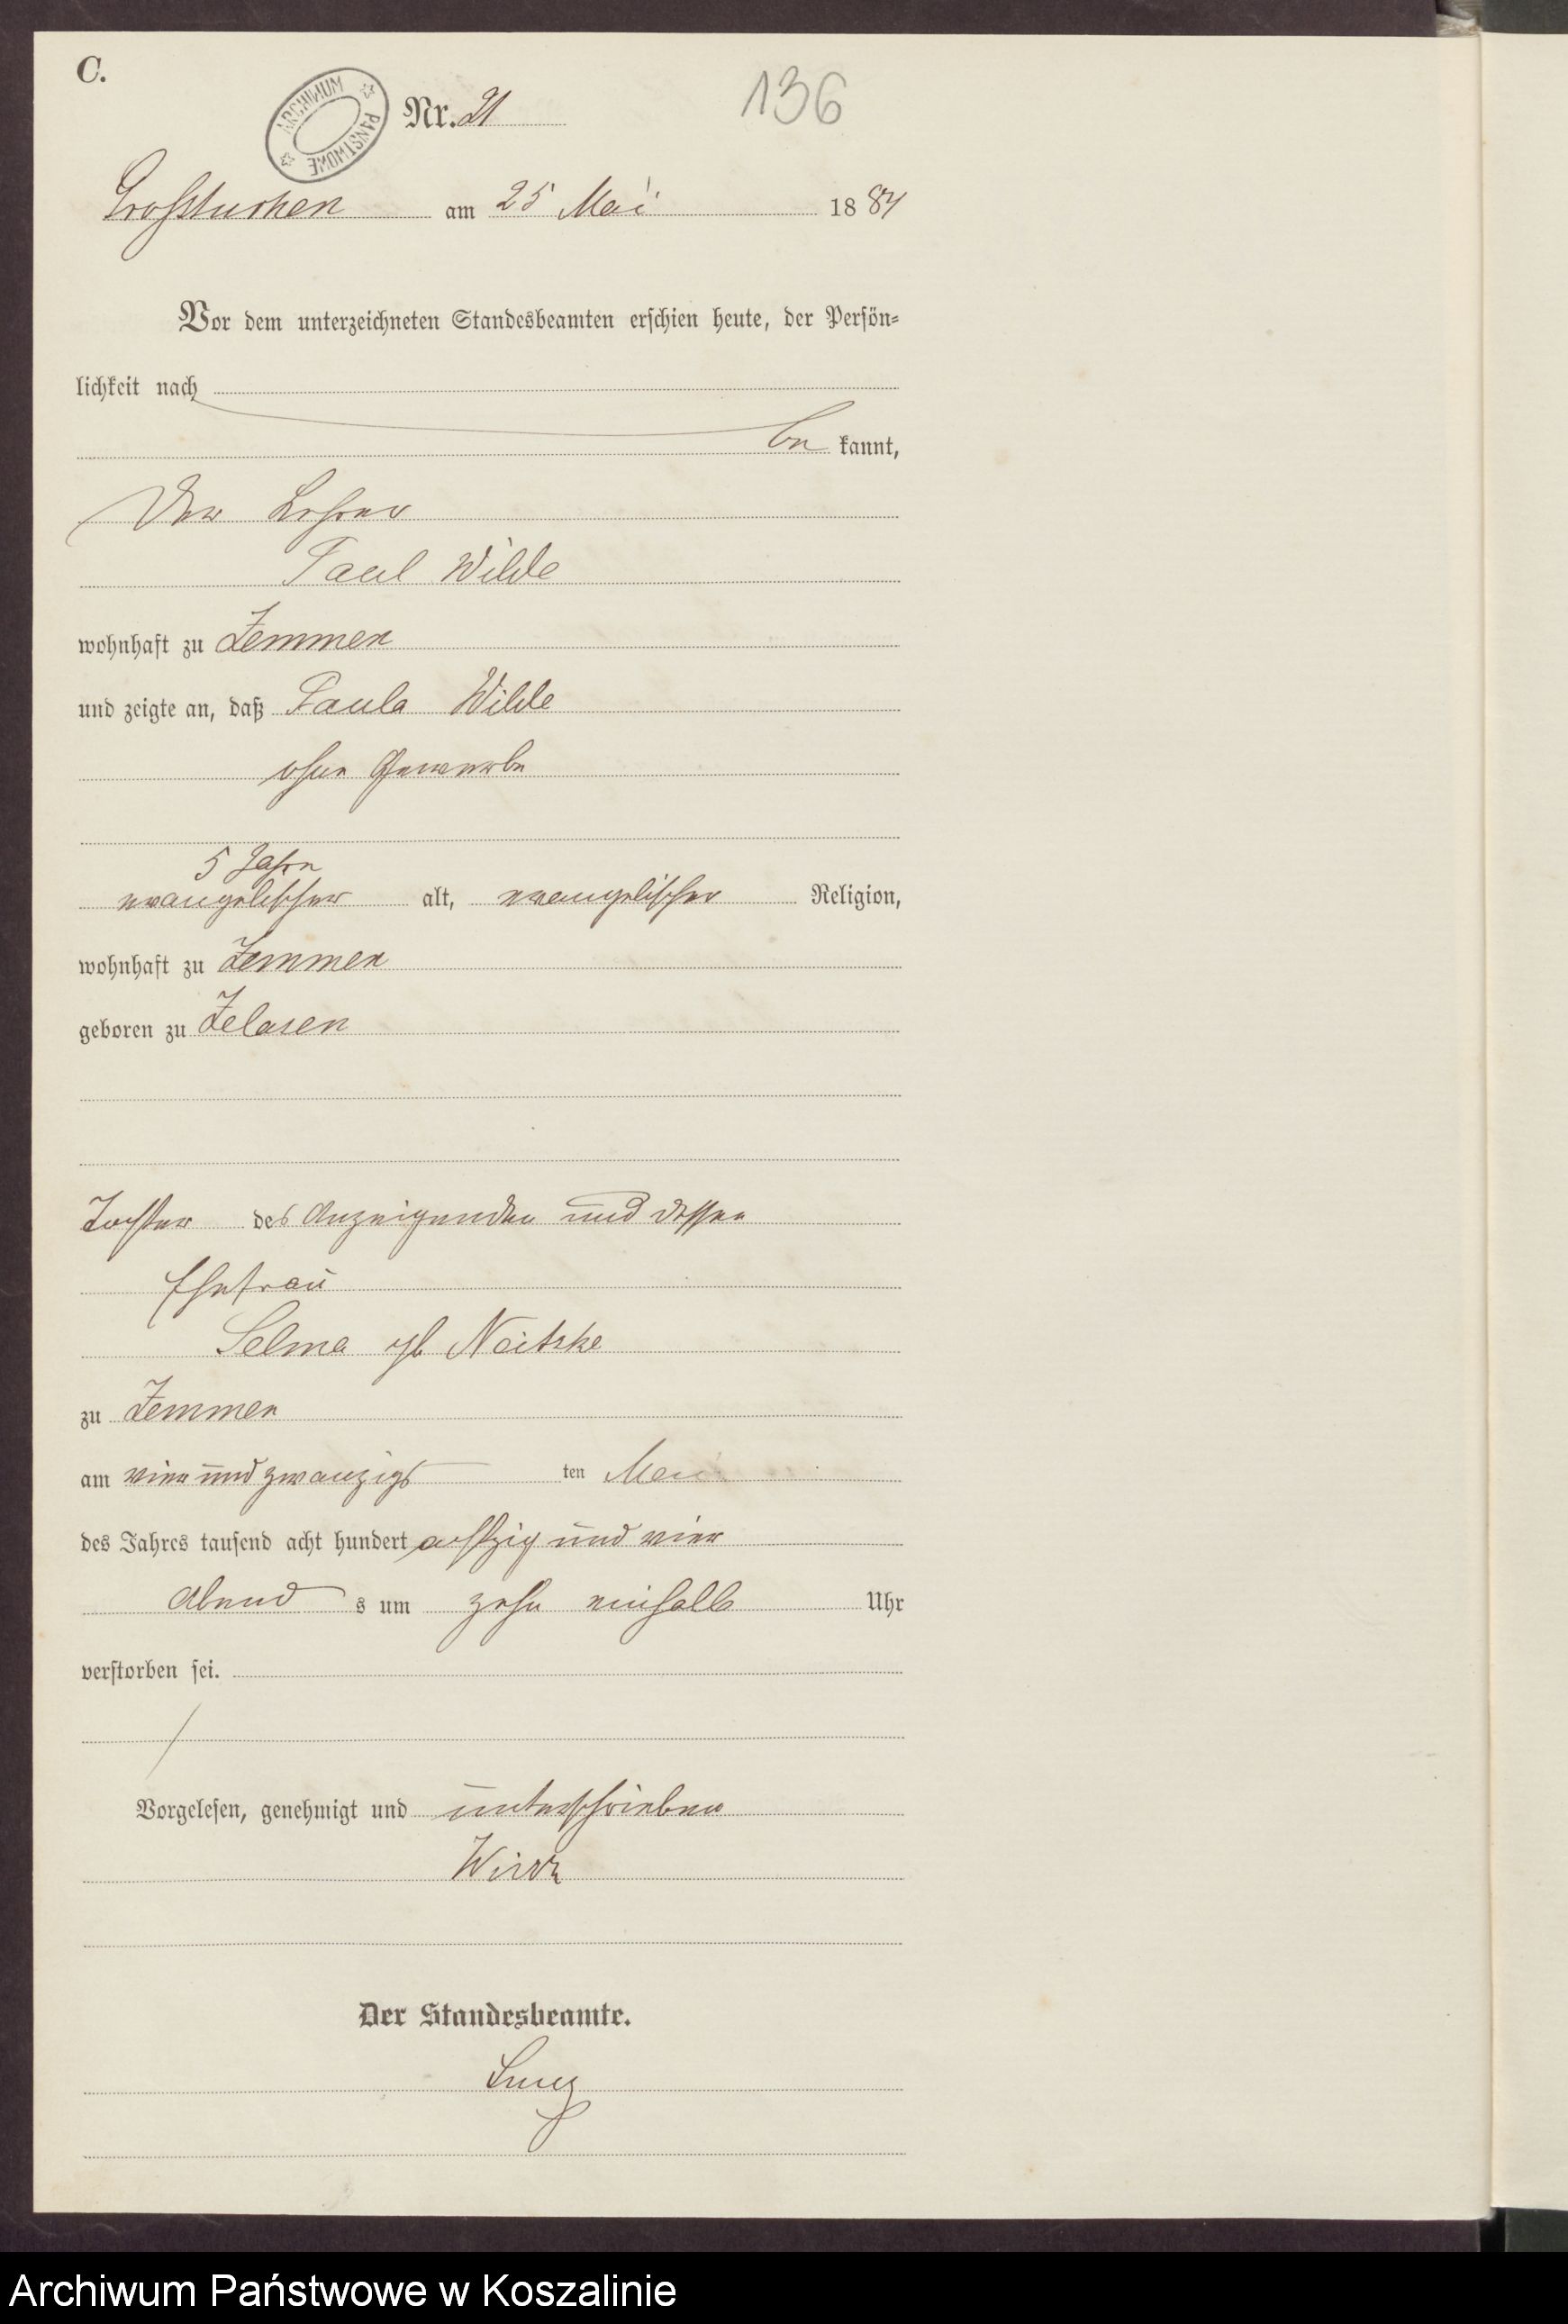 C.
ARCHIWUM PAŃSTWOWE
Nr. 21
136
Grosstuchen am 25 Mai 1884
Vor dem unterzeichneten Standesbeamten erschien heute, der Persön-
lichkeit nach
be kannt,
Der Lehrer
Paul Wilde
wohnhaft zu Zemmen
und zeigte an, daß Paula Wilde
ohne Gewerbe
5 Jahre
evangelischer alt, evangelischer Religion,
wohnhaft zu Zemmen
geboren zu Zelasen
Tochter des Anzeigenden und dessen
Ehefrau
Selma gb Neitzke
zu Zemmen
am vier und zwanzigs ten Mai
des Jahres tausend acht hundert achtzig und vier
Abend s um zehn einhalb Uhr
verstorben sei.
Vorgelesen, genehmigt und unterschrieben
Der Standesbeamte.
Archiwum Państwowe w Koszalinie